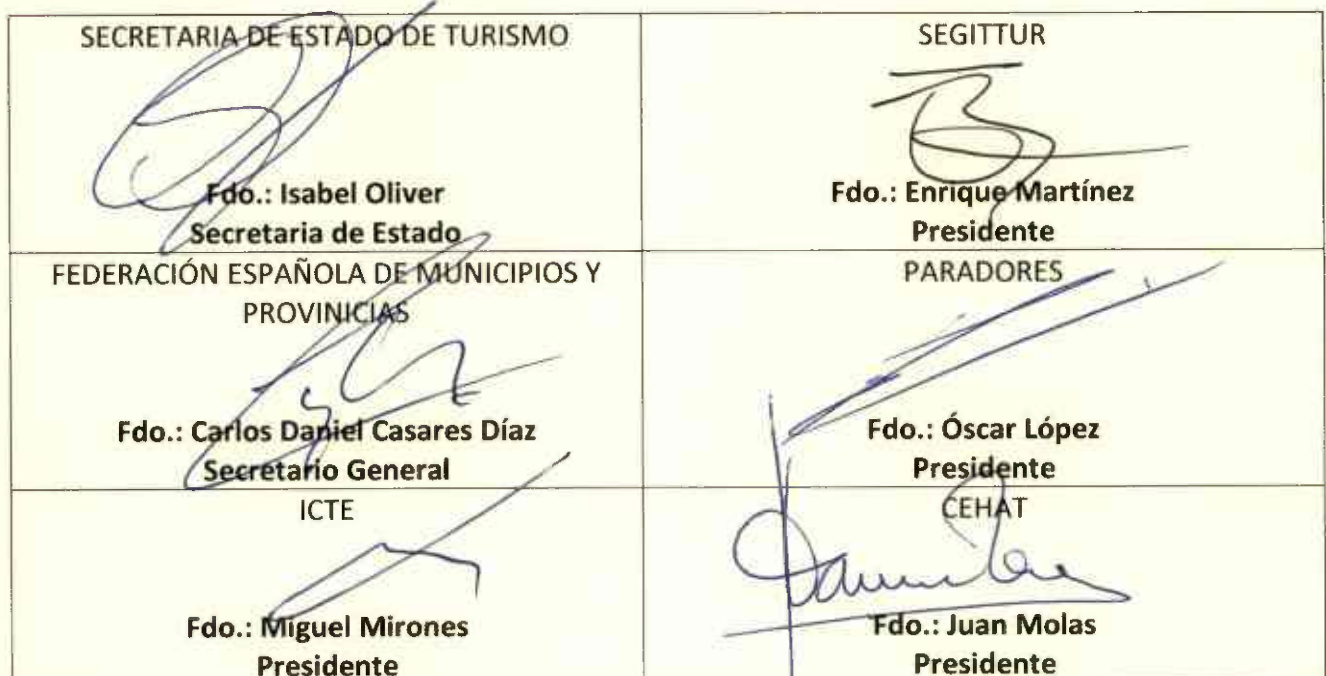 SECRETARIA DE ESTADO DE TURISMO
Fdo.: Isabel Oliver
Secretaria de Estado
SEGITTUR
Fdo.: Enrique Martínez
Presidente
FEDERACIÓN ESPAÑOLA DE MUNICIPIOS Y
PROVINICIAS
Fdo.: Carlos Daniel Casares Díaz
Secretario General
PARADORES
Fdo.: Óscar López
Presidente
ICTE
Fdo.: Miguel Mirones
Presidente
CEHAT
Fdo.: Juan Molas
Presidente